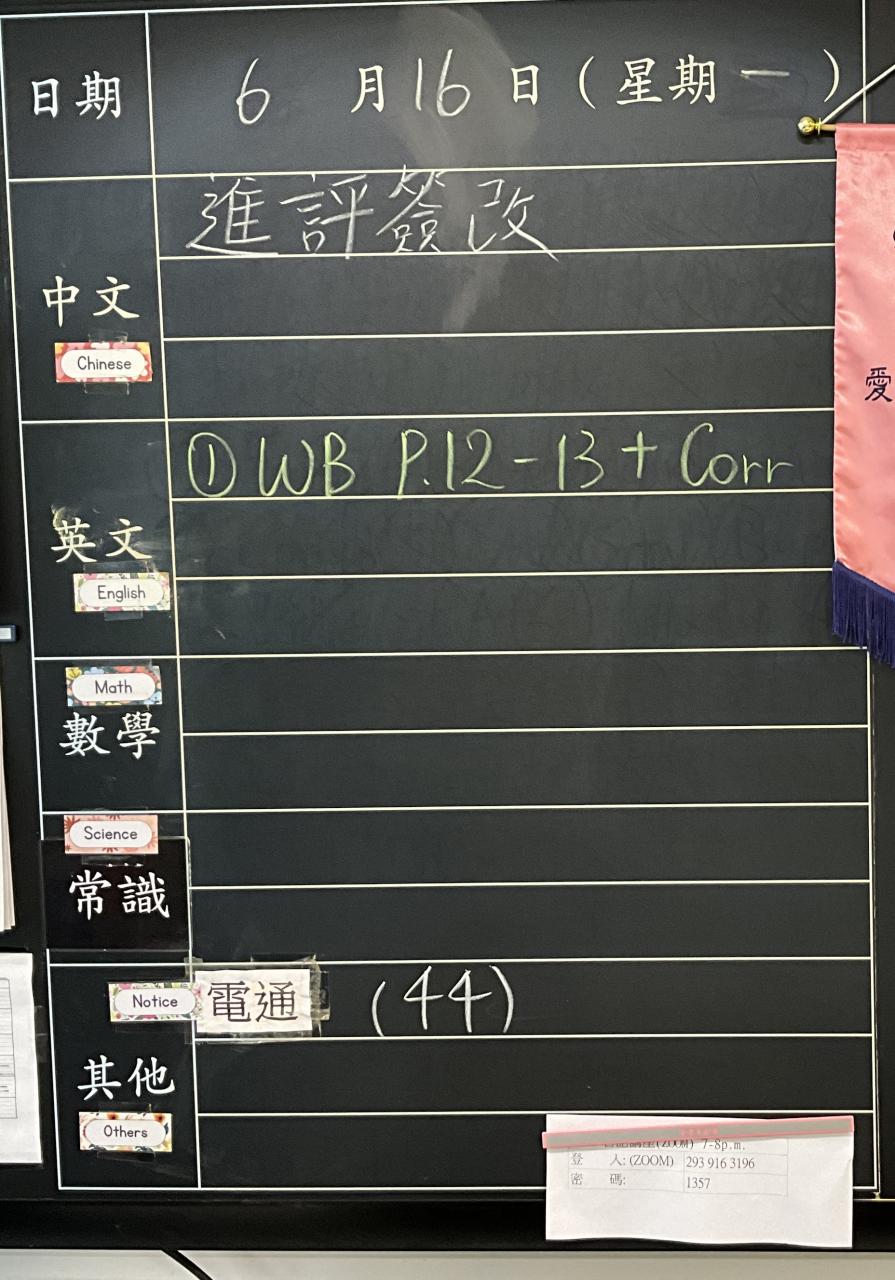 日期 6 月 16 日（星期 一 ）
進評簽改
中文
Chinese
① WB P.12-13 + Corr
英文
English
Math
數學
Science
常識
Notice 電通 (44)
其他
Others
愛
(ZOOM) 7-8p.m.
登 人: (ZOOM) 293 916 3196
密 碼: 1357